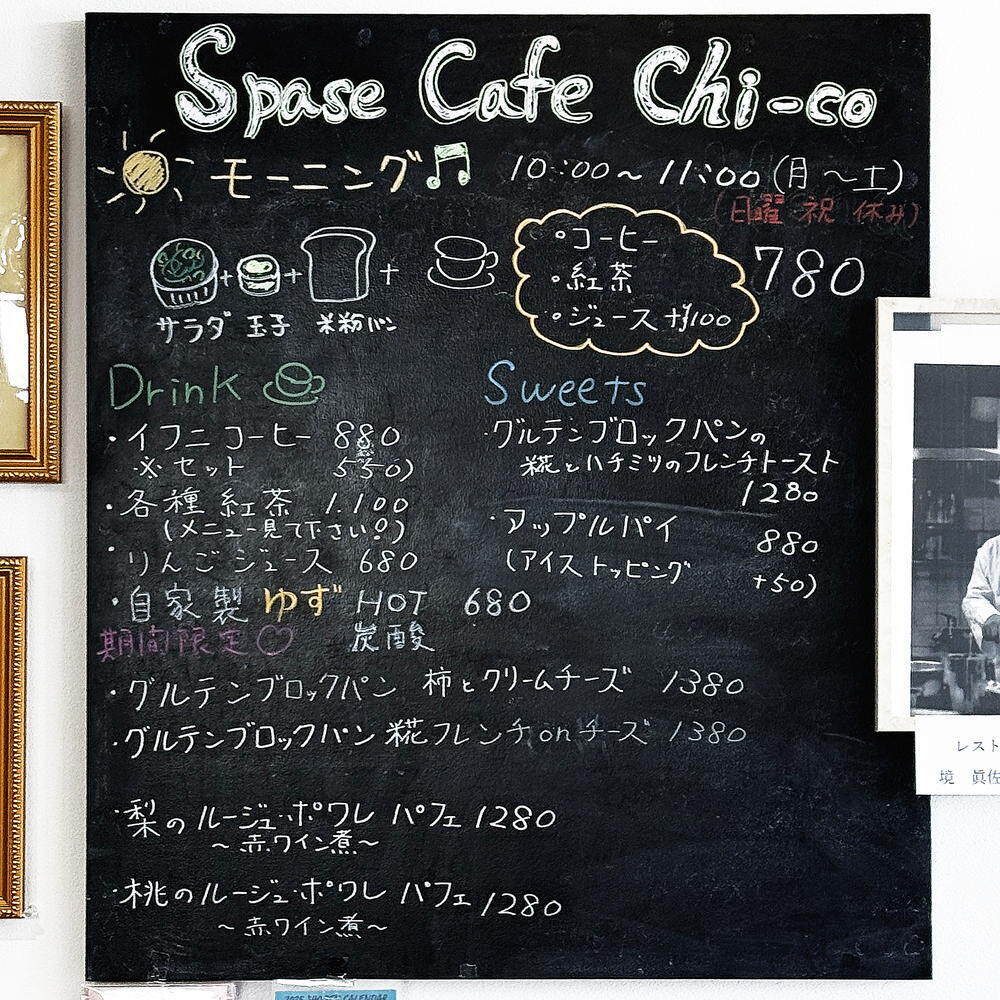 Spase Cafe Chi-co
モーニング♫ 10:00～11:00(月～土)
(日曜 祝 休み)
サラダ 玉子 米粉パン
・コーヒー
・紅茶
・ジュース +¥100
780
Drink
・イフニコーヒー 880
※セット 550)
・各種紅茶 1.100
(メニュー見て下さい!)
・りんごジュース 680
・自家製ゆず HOT 680
炭酸
Sweets
・グルテンブロックパンの
糀とハチミツのフレンチトースト
1280
・アップルパイ 880
(アイストッピング +50)
期間限定♡
・グルテンブロックパン 柿とクリームチーズ 1380
・グルテンブロックパン 糀フレンチonチーズ 1380
・梨のルージュ・ポワレ パフェ 1280
～赤ワイン煮～
・桃のルージュ・ポワレ パフェ 1280
～赤ワイン煮～
レスト
境 眞佐